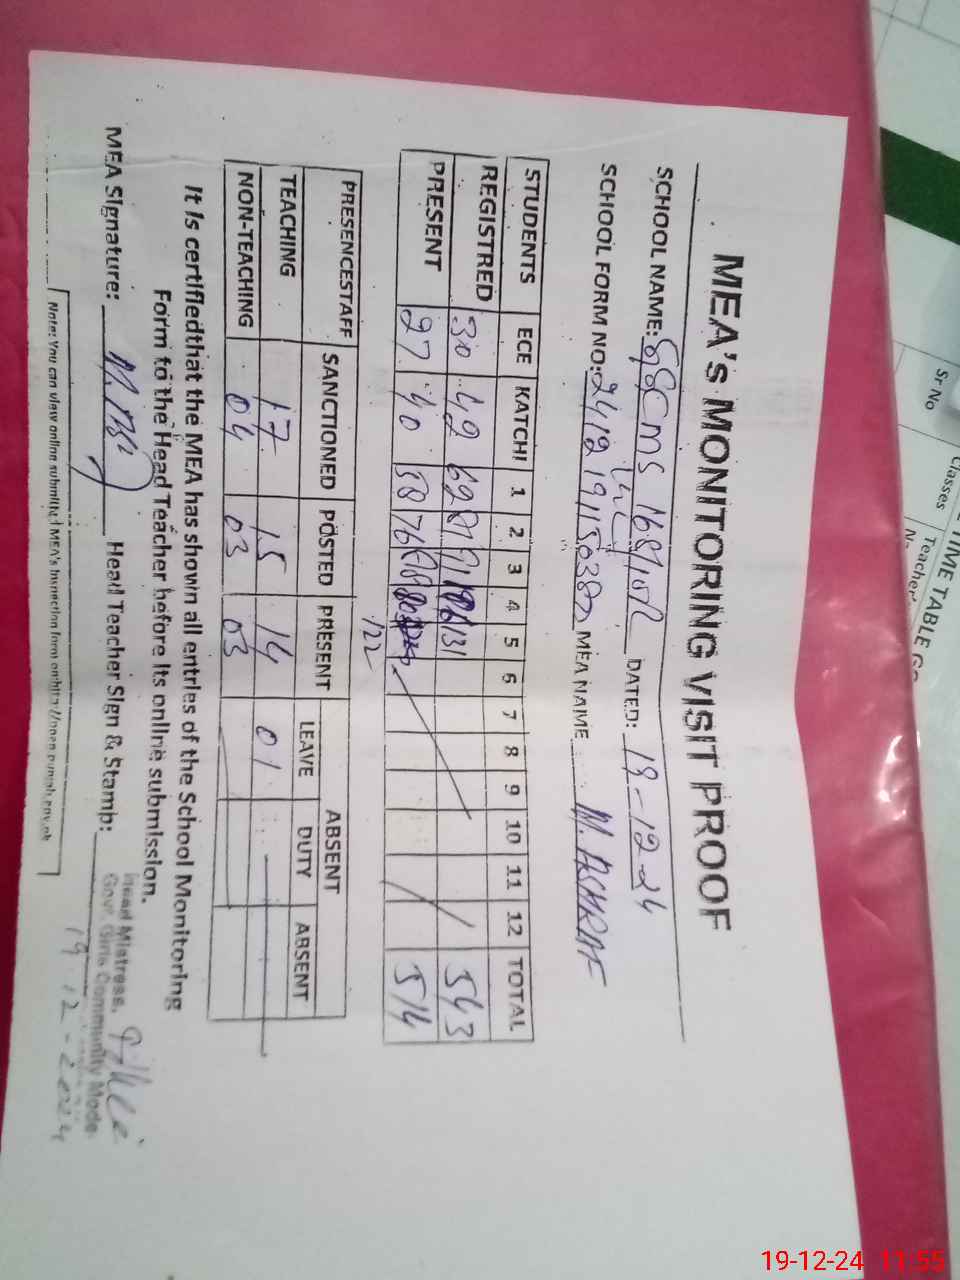 MEA's MONITORING VISIT PROOF
SCHOOL NAME: GGCMS 168/10R DATED: 19-12-24
SCHOOL FORM NO: MEA NAME M. ASHRAF
STUDENTS ECE KATCHI 1 2 3 4 5 6 7 8 9 10 11 12 TOTAL
REGISTRED 30 42 62 131 543
PRESENT 27 40 58 76 514
122
PRESENCESTAFF SANCTIONED POSTED PRESENT ABSENT
LEAVE DUTY ABSENT
TEACHING 17 15 14 01
NON-TEACHING 04 03 03
It is certifiedthat the MEA has shown all entries of the School Monitoring
Form to the Head Teacher before its online submission.
MEA Signature: Head Teacher Sign & Stamp:
Head Mistress,
Govt. Girls Community Mode
19-12-2024
Note: You can view online submitted MEA's inspection form
TIME TABLE
Classes
Sr No
Teacher
19-12-24 11:55